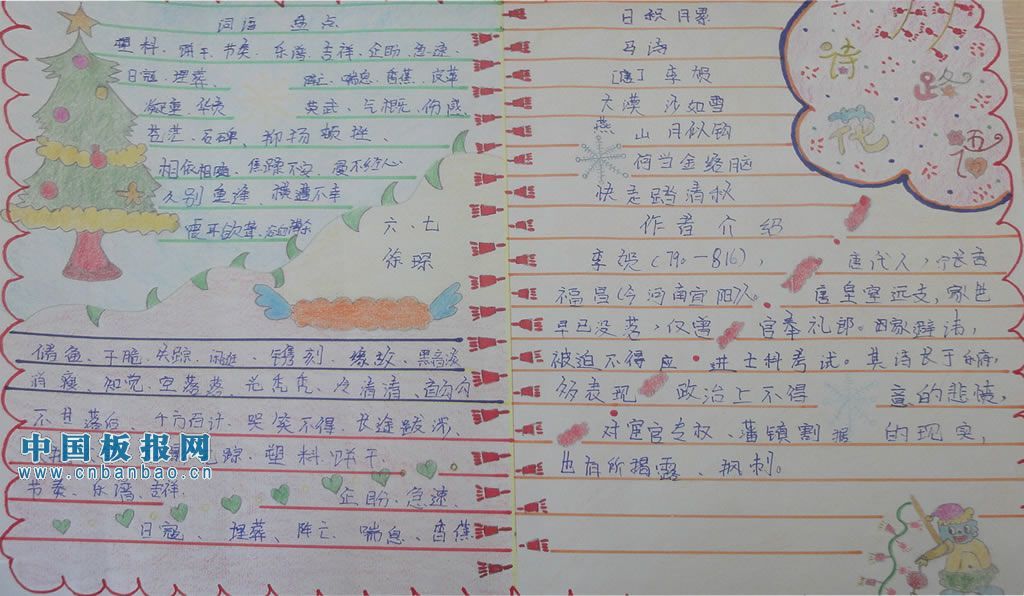 词语 盘点
塑料、饼干、节奏、乐谱、吉祥、企盼、急速、
日寇、埋葬、 阵亡、喘息、香蕉、皮革
凝重、华贵 英武、气概、伤感
苍茫、石碑、抑扬顿挫、
相依相随、焦躁不安、漫不经心
久别重逢、横遭不幸
震耳欲聋、
六、七
徐琛
储备、干脆、失踪、闲逛、镌刻、缘故、黑洞洞
消瘦、知觉、空荡荡、光秃秃、冷清清、直勾勾
不甘落后、千方百计、哭笑不得、长途跋涉、
踪、塑料、饼干、
节奏、乐谱、吉祥、 企盼、急速、
日寇、埋葬、阵亡、喘息、香蕉
中国板报网
www.cnbanbao.cn
日积月累
马诗
[唐] 李贺
大漠沙如雪
燕山月似钩
何当金络脑
快走踏清秋
作者介绍
李贺(790—816), 唐代人,字长吉
福昌(今河南宜阳)人。 唐皇室远支,家世
早已没落,仅曾官奉礼郎。因家避讳,
被迫不得应进士科考试。其诗长于
多表现 政治上不得 意的悲愤,
对宦官专权、藩镇割据 的现实,
也有所揭露、讽刺。
诗
路
花
语